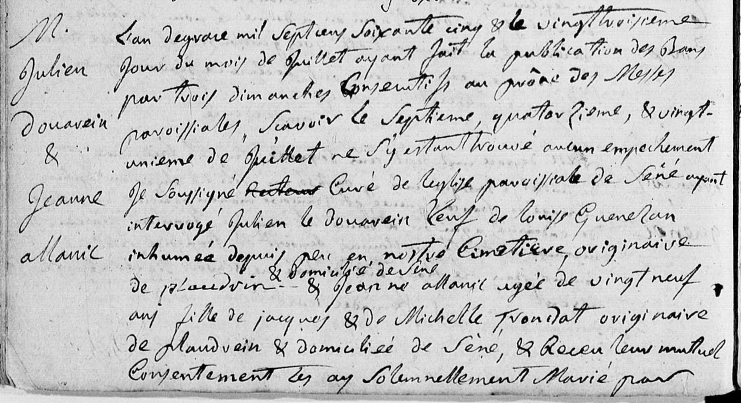 M.
Julien
Douarein
&
Jeanne
allanic
L'an degrace mil Septcens Soixante cinq & le vingttroisieme
Jour du mois de Juillet ayant fait la publication des Bans
par trois dimanches Consecutifs au prône des Messes
paroissiales, Scavoir le Septieme, quatorzieme, & vingt-
unieme de Juillet ne S'y estant trouvé aucun empechement
Je Soussigné Curé de leglise paroissiale de Séné ayant
interrogé Julien le Douarein Veuf de louise Guenezan
inhumée depuis peu en nostre Cimetiere, originaire
& domicilié de Sene
de plaudrin & Jeanne allanic agée de vingt neuf
ans fille de jacques & de Michelle Trondat originaire
de plaudrein & domiciliée de Séné, & Receu leur mutuel
Consentement les ay Solemnellement Marié par